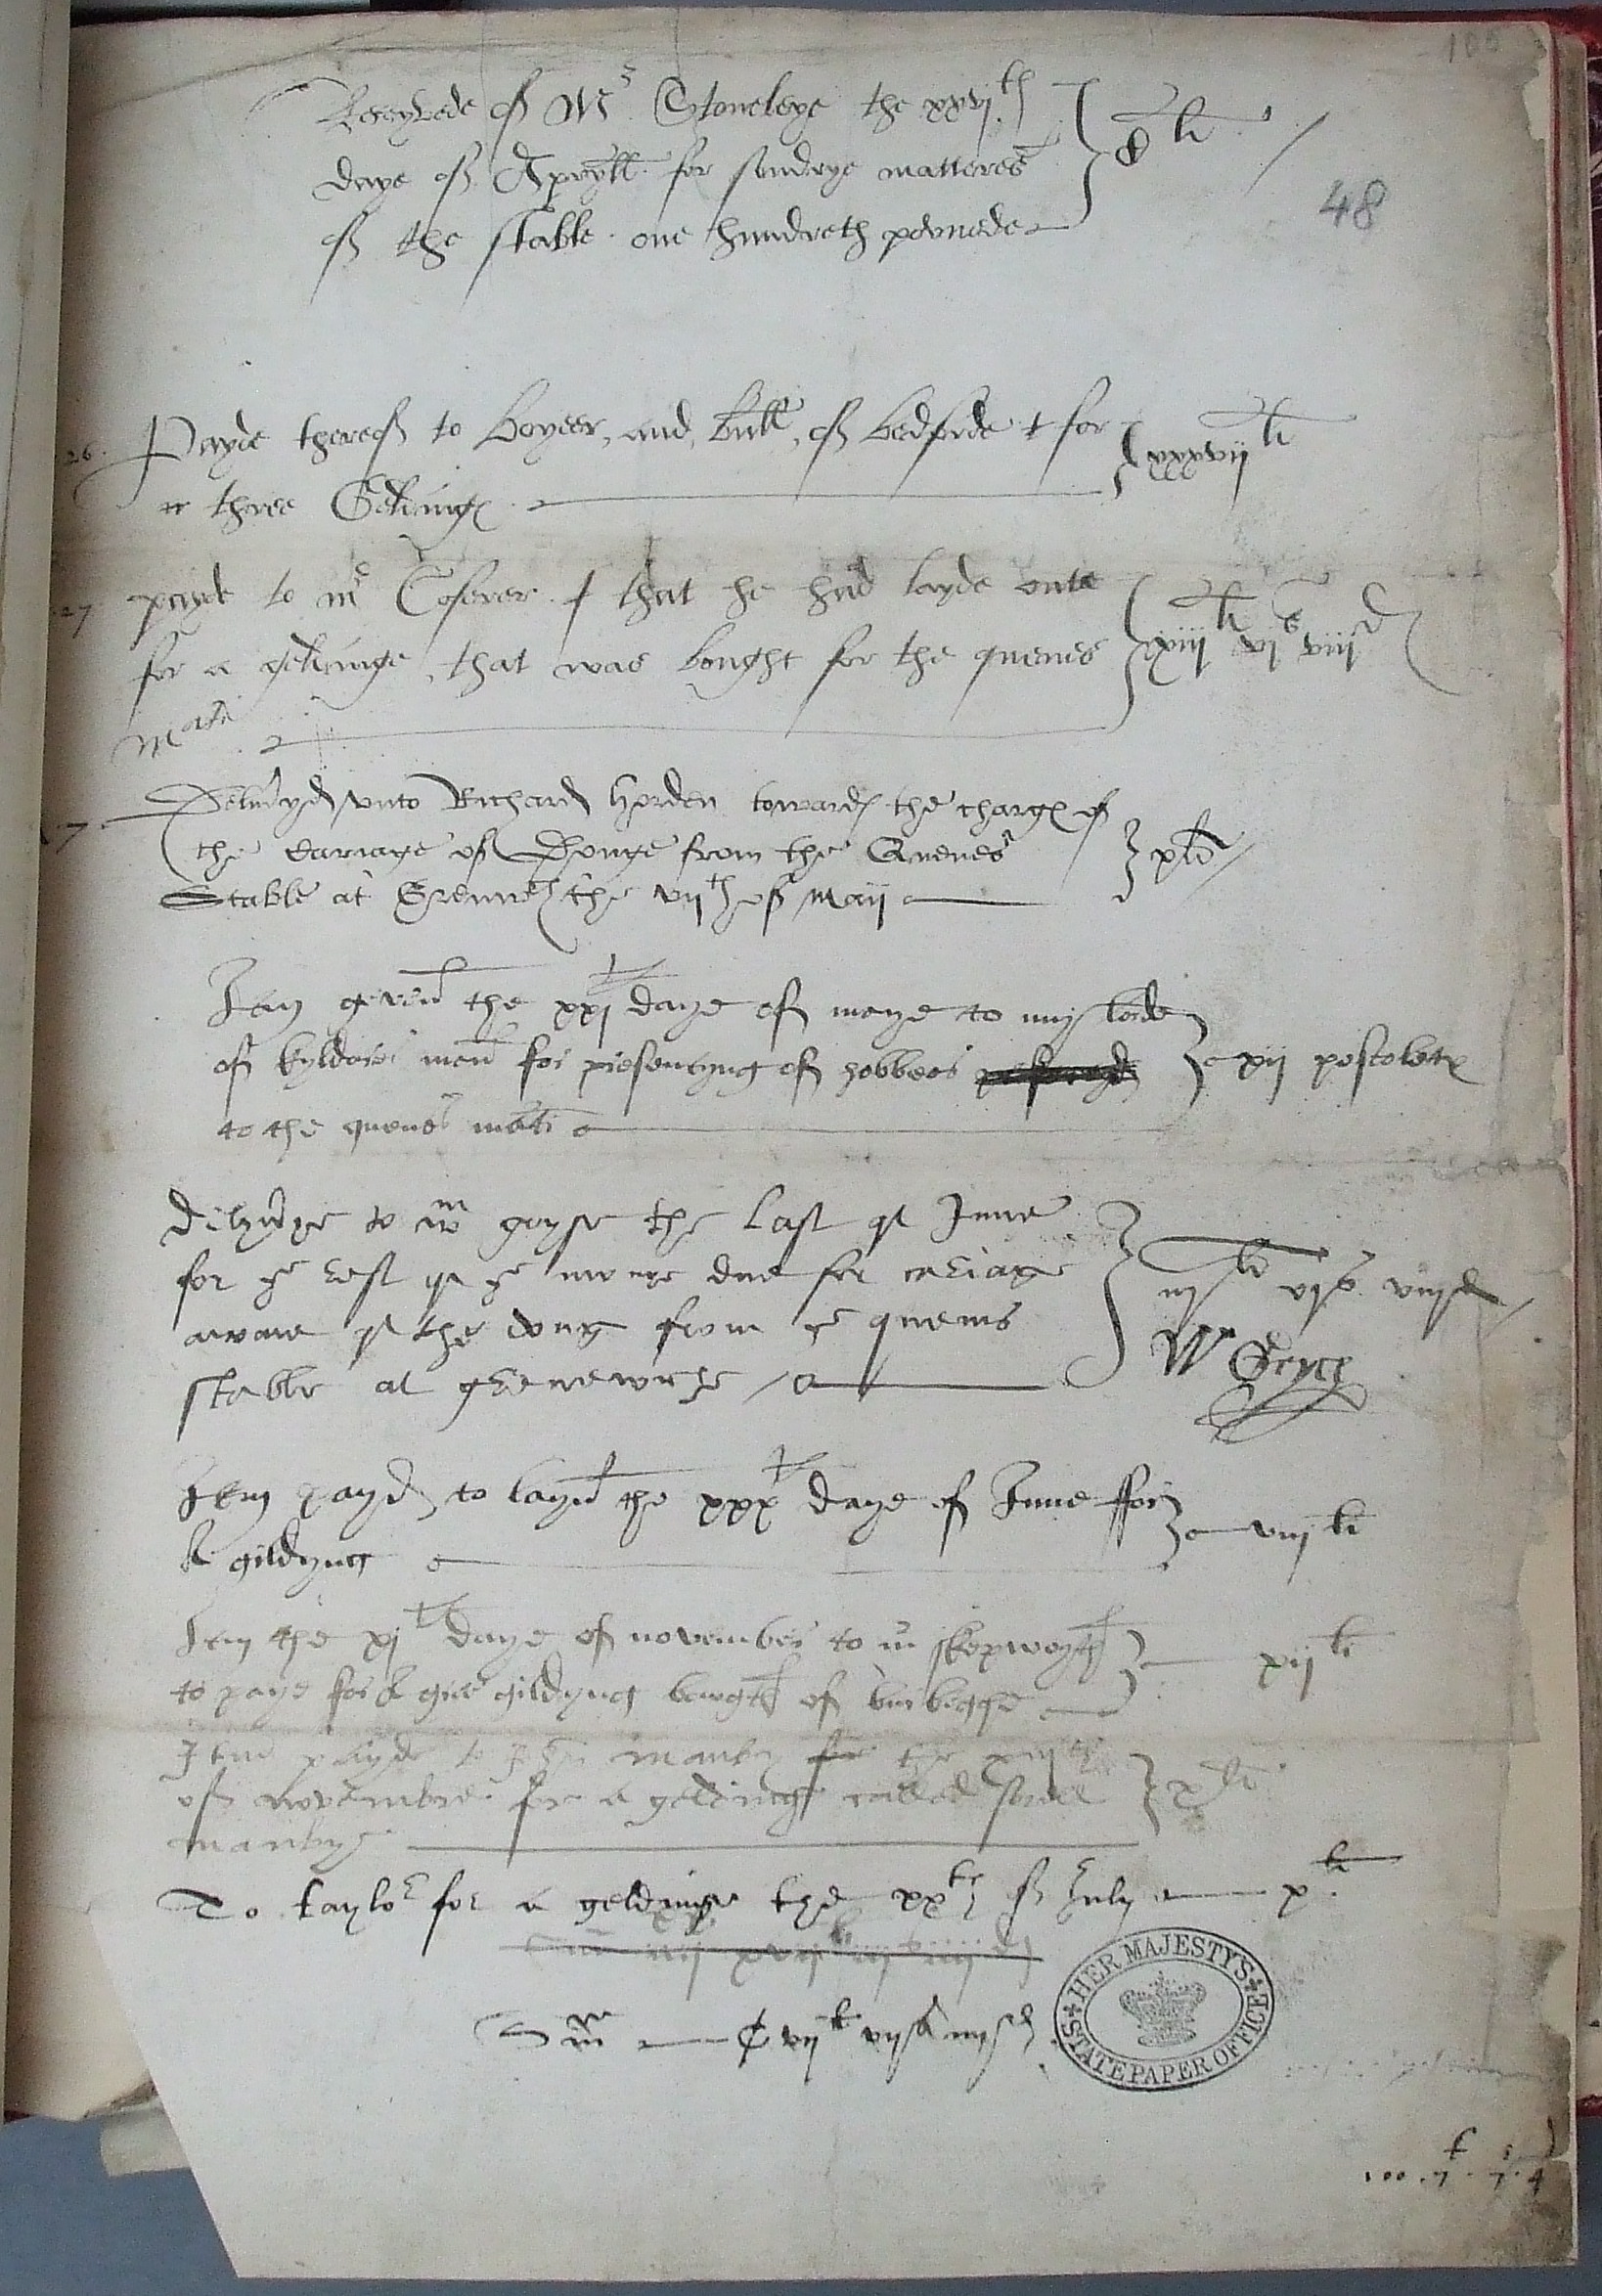 100
Receyvede of Mr Stoneleye the xxvjth
daye of Apryll for sundrye matteres
of the stable one hundreth powndes
C li
48
26. Payde thereof to Boyeer, and, Bull, of Bedforde for
three Geldings
xxxvij li
27 payde to mr Coferer that he had layde oute
for a geldinge, that was bought for the quenes
Matie
xiij li vj s viij d
7. Delivryd unto Richard Horden towards the charges of
the Cariage of Donge from the Quenes
Stable at Grenwch the vijth of Maij
x li
Itm geven the xxjth daye of maye to my lorde
of kyldares men for presentyng of hobbees
to the quenes mati
xij postolets
delyvre to mr gryse the last of June
for ye rest of ye mony due for cariage
awaie of the dong from ye quenis
stable at grenewyche
iij li vj s viij d
Wm Gryce
Itm payd to layn the xxxth daye of June ffor
A gildyng
viij li
Itm the xjth daye of november to mr skepweyth
to paye for A grei gildyng bowght of burbegge
xij li
Itm payde to manby for the
of novembre for a geldinge called sorell
manbye
x li
To taylor for a geldinge the xxth of July x li
Sum C vij li vij s iiij d
HER MAJESTY'S
STATE PAPER OFFICE
£ s d
100.7.7.4